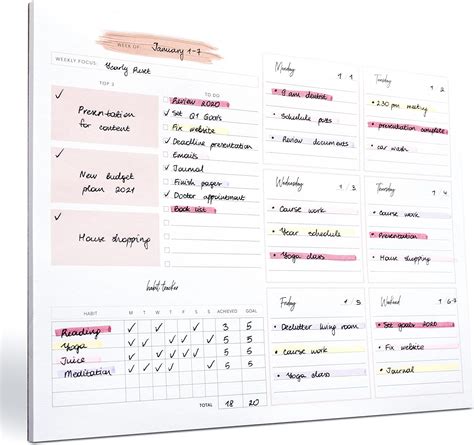 WEEK OF: January 1-7
WEEKLY FOCUS: Yearly Reset
TOP 3
Presentation
for content
New budget
plan 2021
House shopping
TO DO
Review 2020
Set Q1 Goals
Fix website
Deadline presentation
Emails
Journal
Finish paper
Doctor appointment
Book list
Monday 1 1
9 am dentist
Schedule
Review documents
Tuesday 1 2
2:30 pm meeting
presentation complete
car wash
Wednesday 1 3
Course work
Year schedule
Yoga class
Thursday 1 4
Course work
Presentation
House shopping
Friday 1 5
Declutter living room
Course work
Yoga class
Weekend 1 6-7
Set goals 2020
Fix website
Journal
habit tracker
HABIT M T W T F S S ACHIEVED GOAL
Reading ✓ ✓ ✓ 3 5
Yoga ✓ ✓ ✓ ✓ ✓ 5 5
Juice ✓ ✓ ✓ ✓ ✓ 5 5
Meditation ✓ ✓ ✓ ✓ ✓ 5 5
TOTAL 18 20